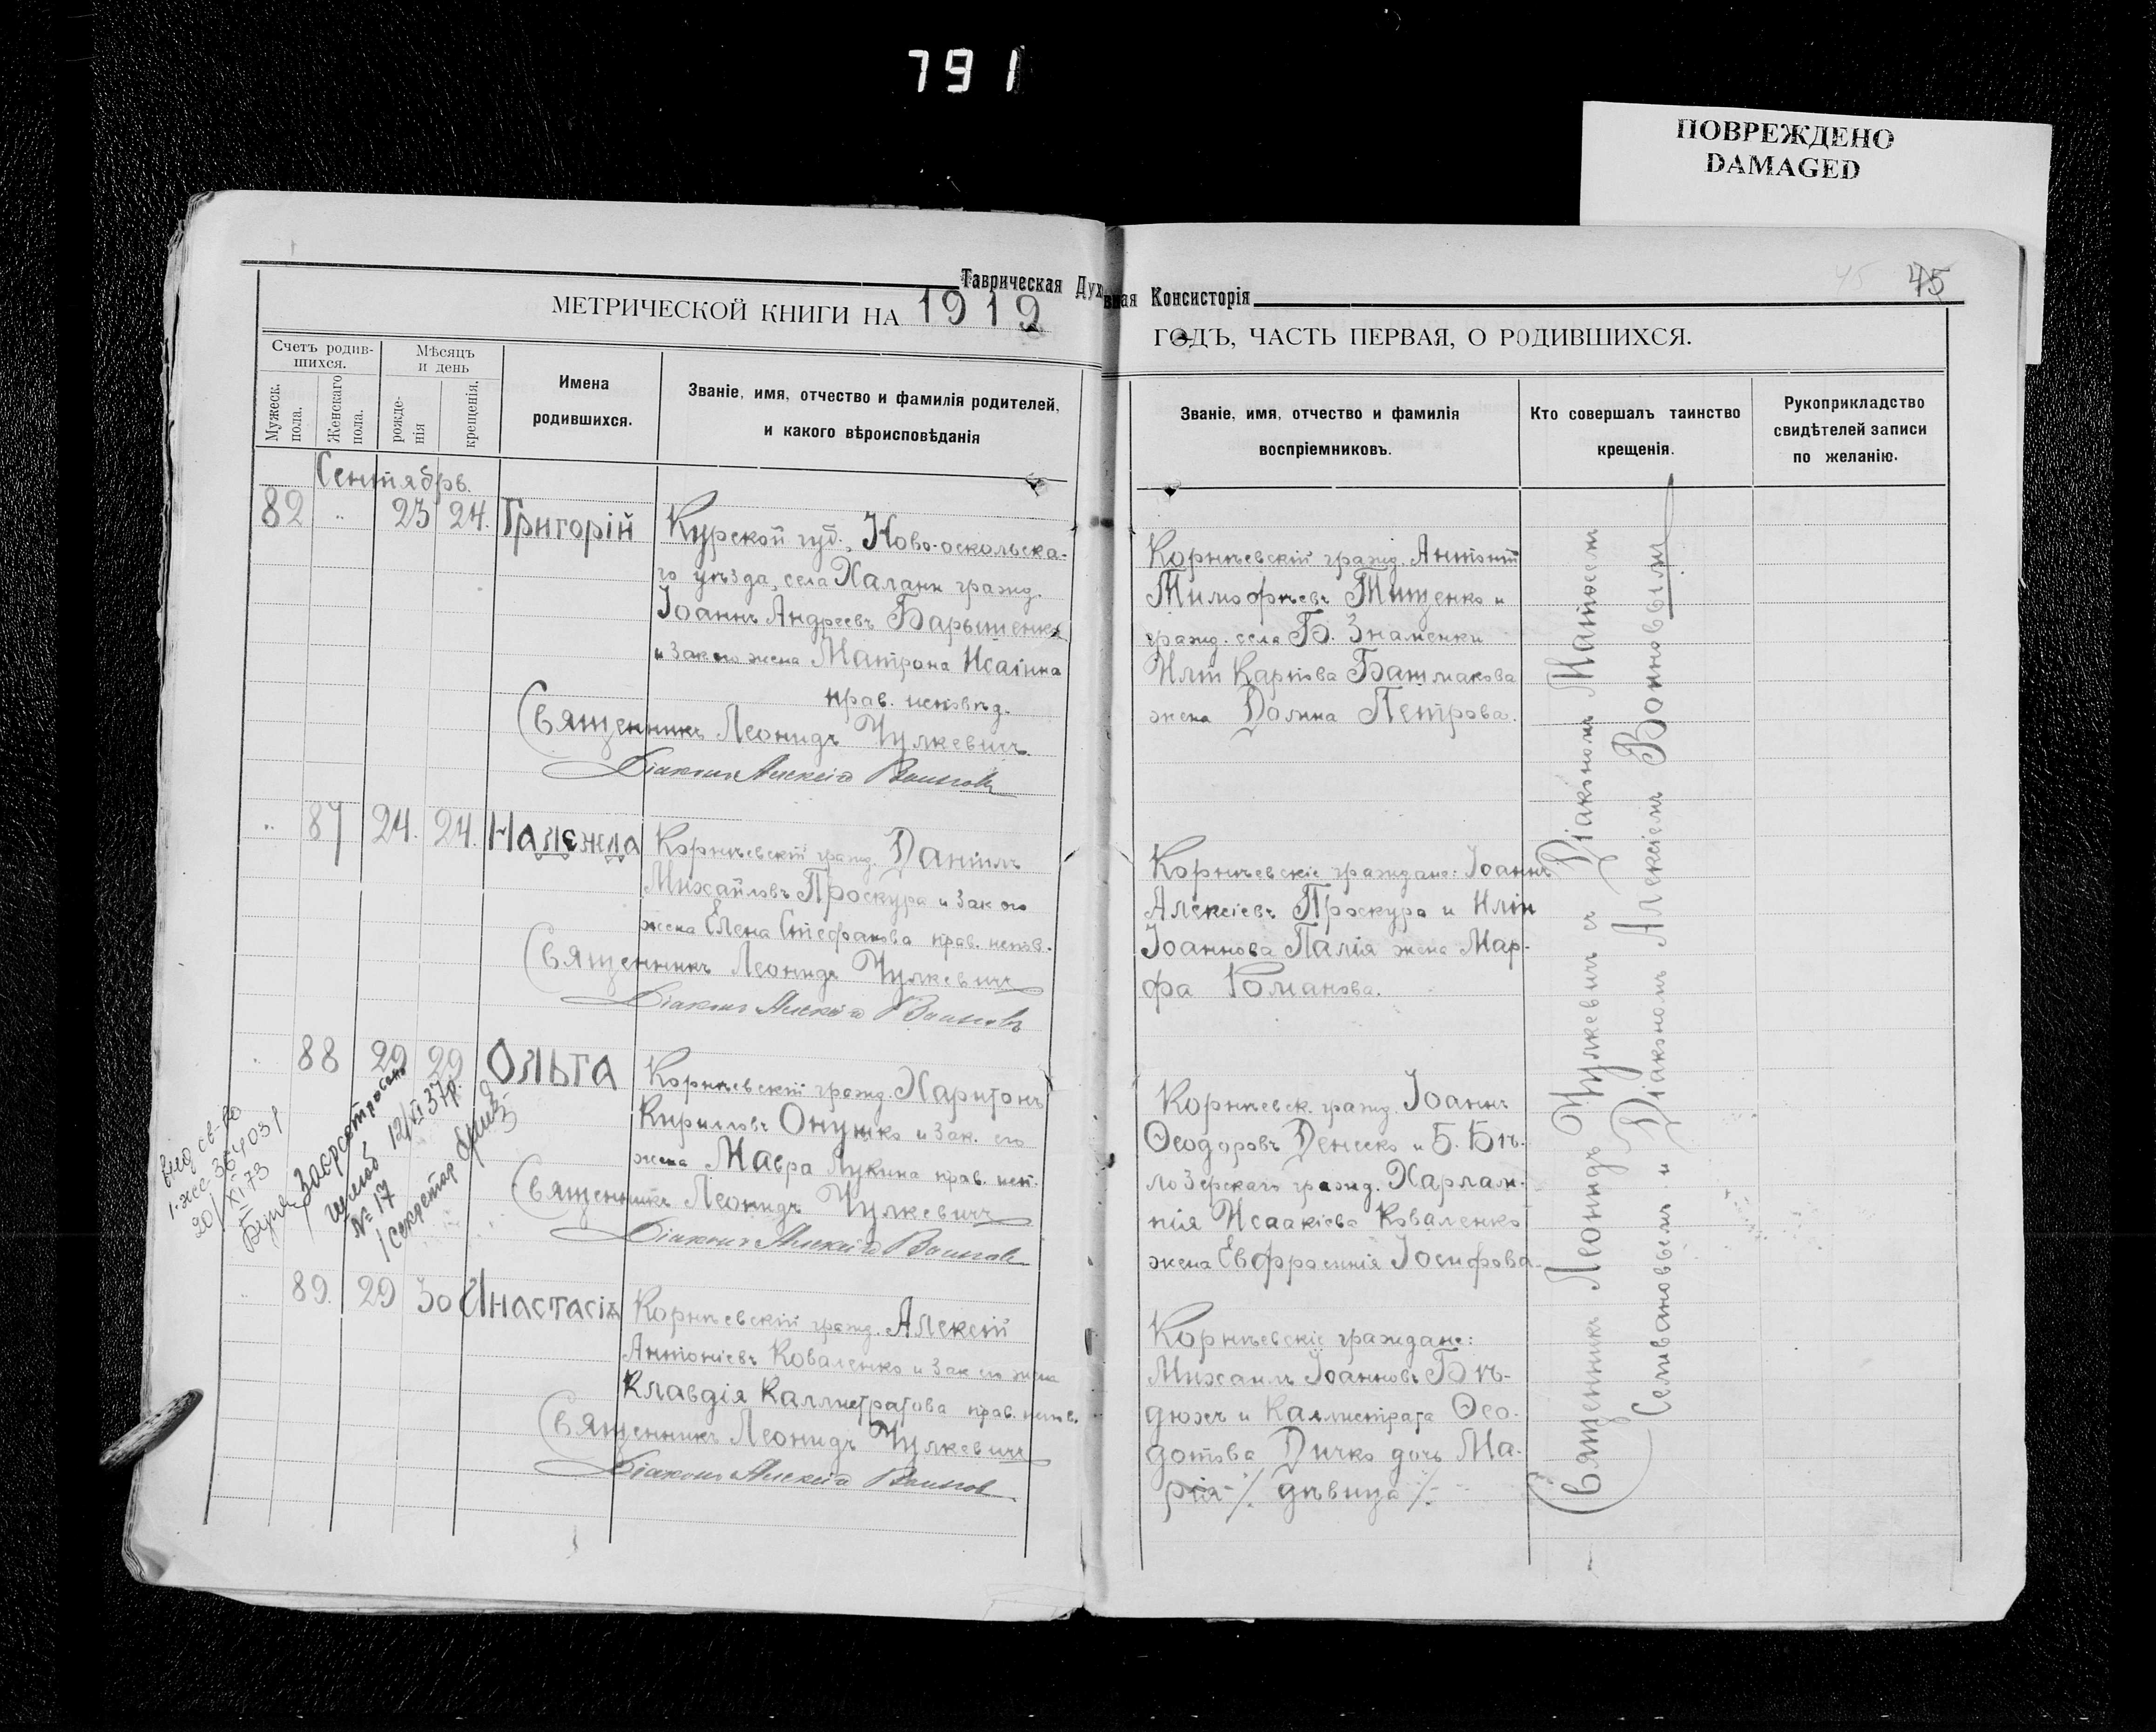 791
ПОВРЕЖДЕНО
DAMAGED
Таврическая Духовная Консисторія
45 45
МЕТРИЧЕСКОЙ КНИГИ НА 1919
ГОДЪ, ЧАСТЬ ПЕРВАЯ, О РОДИВШИХСЯ.
Счетъ родив-
шихся.
Мужеск.
пола.
Женскаго
пола.
Мѣсяцъ
и день
рожде-
нія
крещенія.
Имена
родившихся.
Званіе, имя, отчество и фамилія родителей,
и какого вѣроисповѣданія
Званіе, имя, отчество и фамилія
воспріемниковъ.
Кто совершалъ таинство
крещенія.
Рукоприкладство
свидѣтелей записи
по желанію.
Сентябрь.
82 „ 23 24. Григорій
Курской губ., Ново-оскольска-
го уѣзда, села Халани гражд.
Іоаннъ Андреевъ Барышенко
и зак его жена Матрона Исаіина
прав. исповѣд.
Священникъ Леонидъ Чулкевичъ
Діаконъ Алексій Воиновъ
Корнѣевскій гражд. Антоній
Тимофѣевъ Тищенко и
гражд. села Б. Знаменки
Иліи Карпова Башмакова
жена Домна Петрова.
„ 87 24. 24. Надежда
Корнѣевскій гражд. Даніилъ
Михайловъ Проскура и зак его
жена Елена Стефанова прав. испов.
Священникъ Леонидъ Чулкевичъ
Діаконъ Алексій Воиновъ
Корнѣевскіе граждане: Іоаннъ
Алексіевъ Проскура и Иліи
Іоаннова Палія жена Мар-
фа Романова.
„ 88 29 29 Ольга
Корнѣевскій гражд. Харитонъ
Кирилловъ Онушко и зак. его
жена Мавра Лукина прав. исп.
Священникъ Леонидъ Чулкевичъ
Діаконъ Алексій Воиновъ
Корнѣевск. гражд. Іоаннъ
Ѳеодоровъ Денеско и Б. Бѣ-
лозерскаго гражд. Харлам-
пія Исаакіева Коваленко
жена Евфросинія Іосифова
выд св-во
364031
20/XI 73
№ 17
12/XI 37р.
/Секретар
„ 89. 29 30 Анастасія
Корнѣевскій гражд. Алексій
Антоніевъ Коваленко и зак его жена
Клавдія Каллистратова прав. испов.
Священникъ Леонидъ Чулкевичъ
Діаконъ Алексій Воиновъ
Корнѣевскіе граждане:
Михаилъ Іоанновъ Бѣ-
дюхъ и Каллистрата Ѳео-
дотова Дичко дочь Ма-
рія-/. дѣвица ./-
Священникъ Леонидъ Чулкевичъ съ Діакономъ Матѳеемъ
Селивановымъ и Діакономъ Алексіемъ Воиновымъ